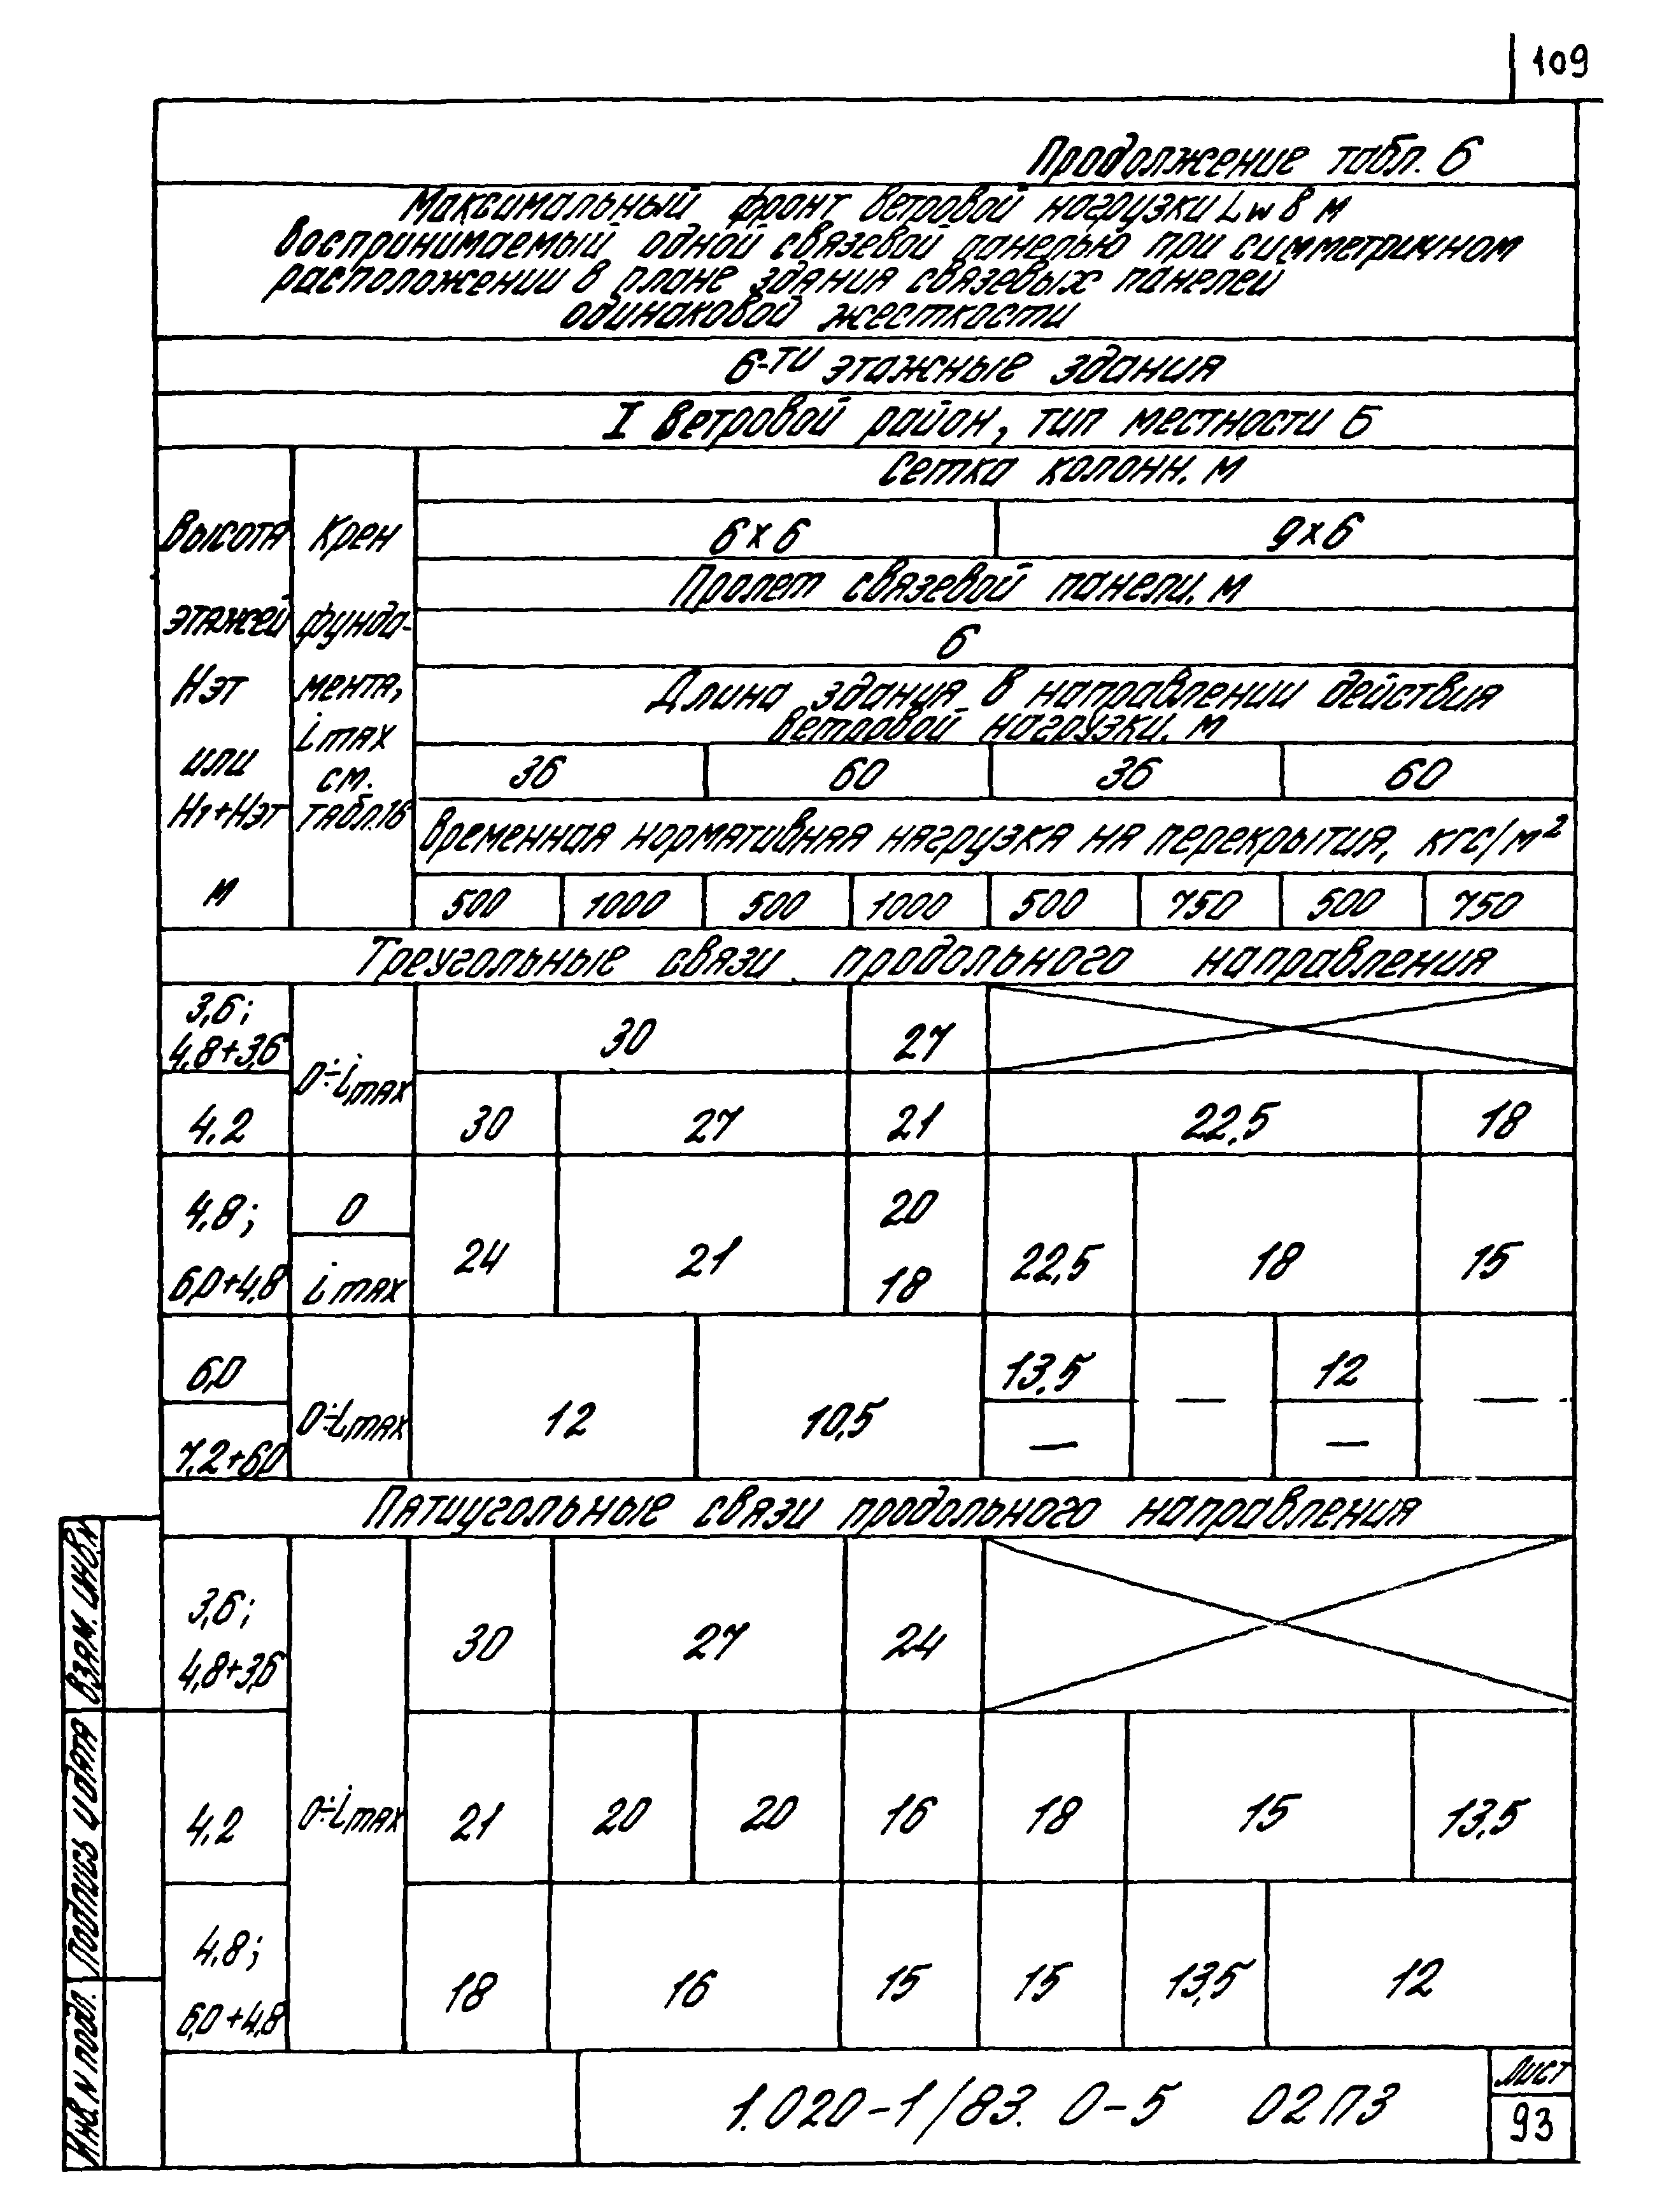 109
Продолжение табл. 6
Максимальный фронт ветровой нагрузки Lw в м
воспринимаемый одной связевой панелью при симметричном
расположении в плане здания связевых панелей
одинаковой жесткости
6-ти этажные здания
I ветровой район, тип местности Б
Высота
этажей
Нэт
или
Н1+Нэт
м
Крен
фунда-
мента,
imax
см.
табл.16
Сетка колонн. м
6×6 9×6
Пролет связевой панели. м
6
Длина здания в направлении действия
ветровой нагрузки. м
36 60 36 60
Временная нормативная нагрузка на перекрытия, кгс/м²
500 1000 500 1000 500 750 500 750
Треугольные связи продольного направления
3,6;
4,8+3,6
0÷imax
30 27
4.2 30 27 21 22.5 18
4.8; 0 20
6,0+4,8 imax 24 21 18 22,5 18 15
6,0 13.5 — 12 —
7.2+6,0 0÷imax 12 10,5 — —
Пятиугольные связи продольного направления
3,6;
4,8+3,6
30 27 24
4.2 0÷imax 21 20 20 16 18 15 13.5
4.8;
6,0+4,8
18 16 15 15 13,5 12
Взам. инв. N
Подпись и дата
Инв. N подл.
1.020-1/83. 0-5 02ПЗ
Лист
93